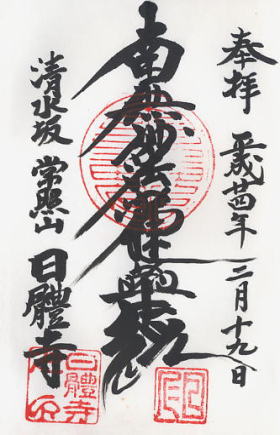 奉拝 平成廿四年 二月十九日
南無妙法蓮華経
清水坂 常照山
日體寺
日體寺